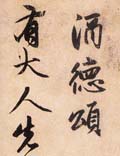 酒德頌
有大人先